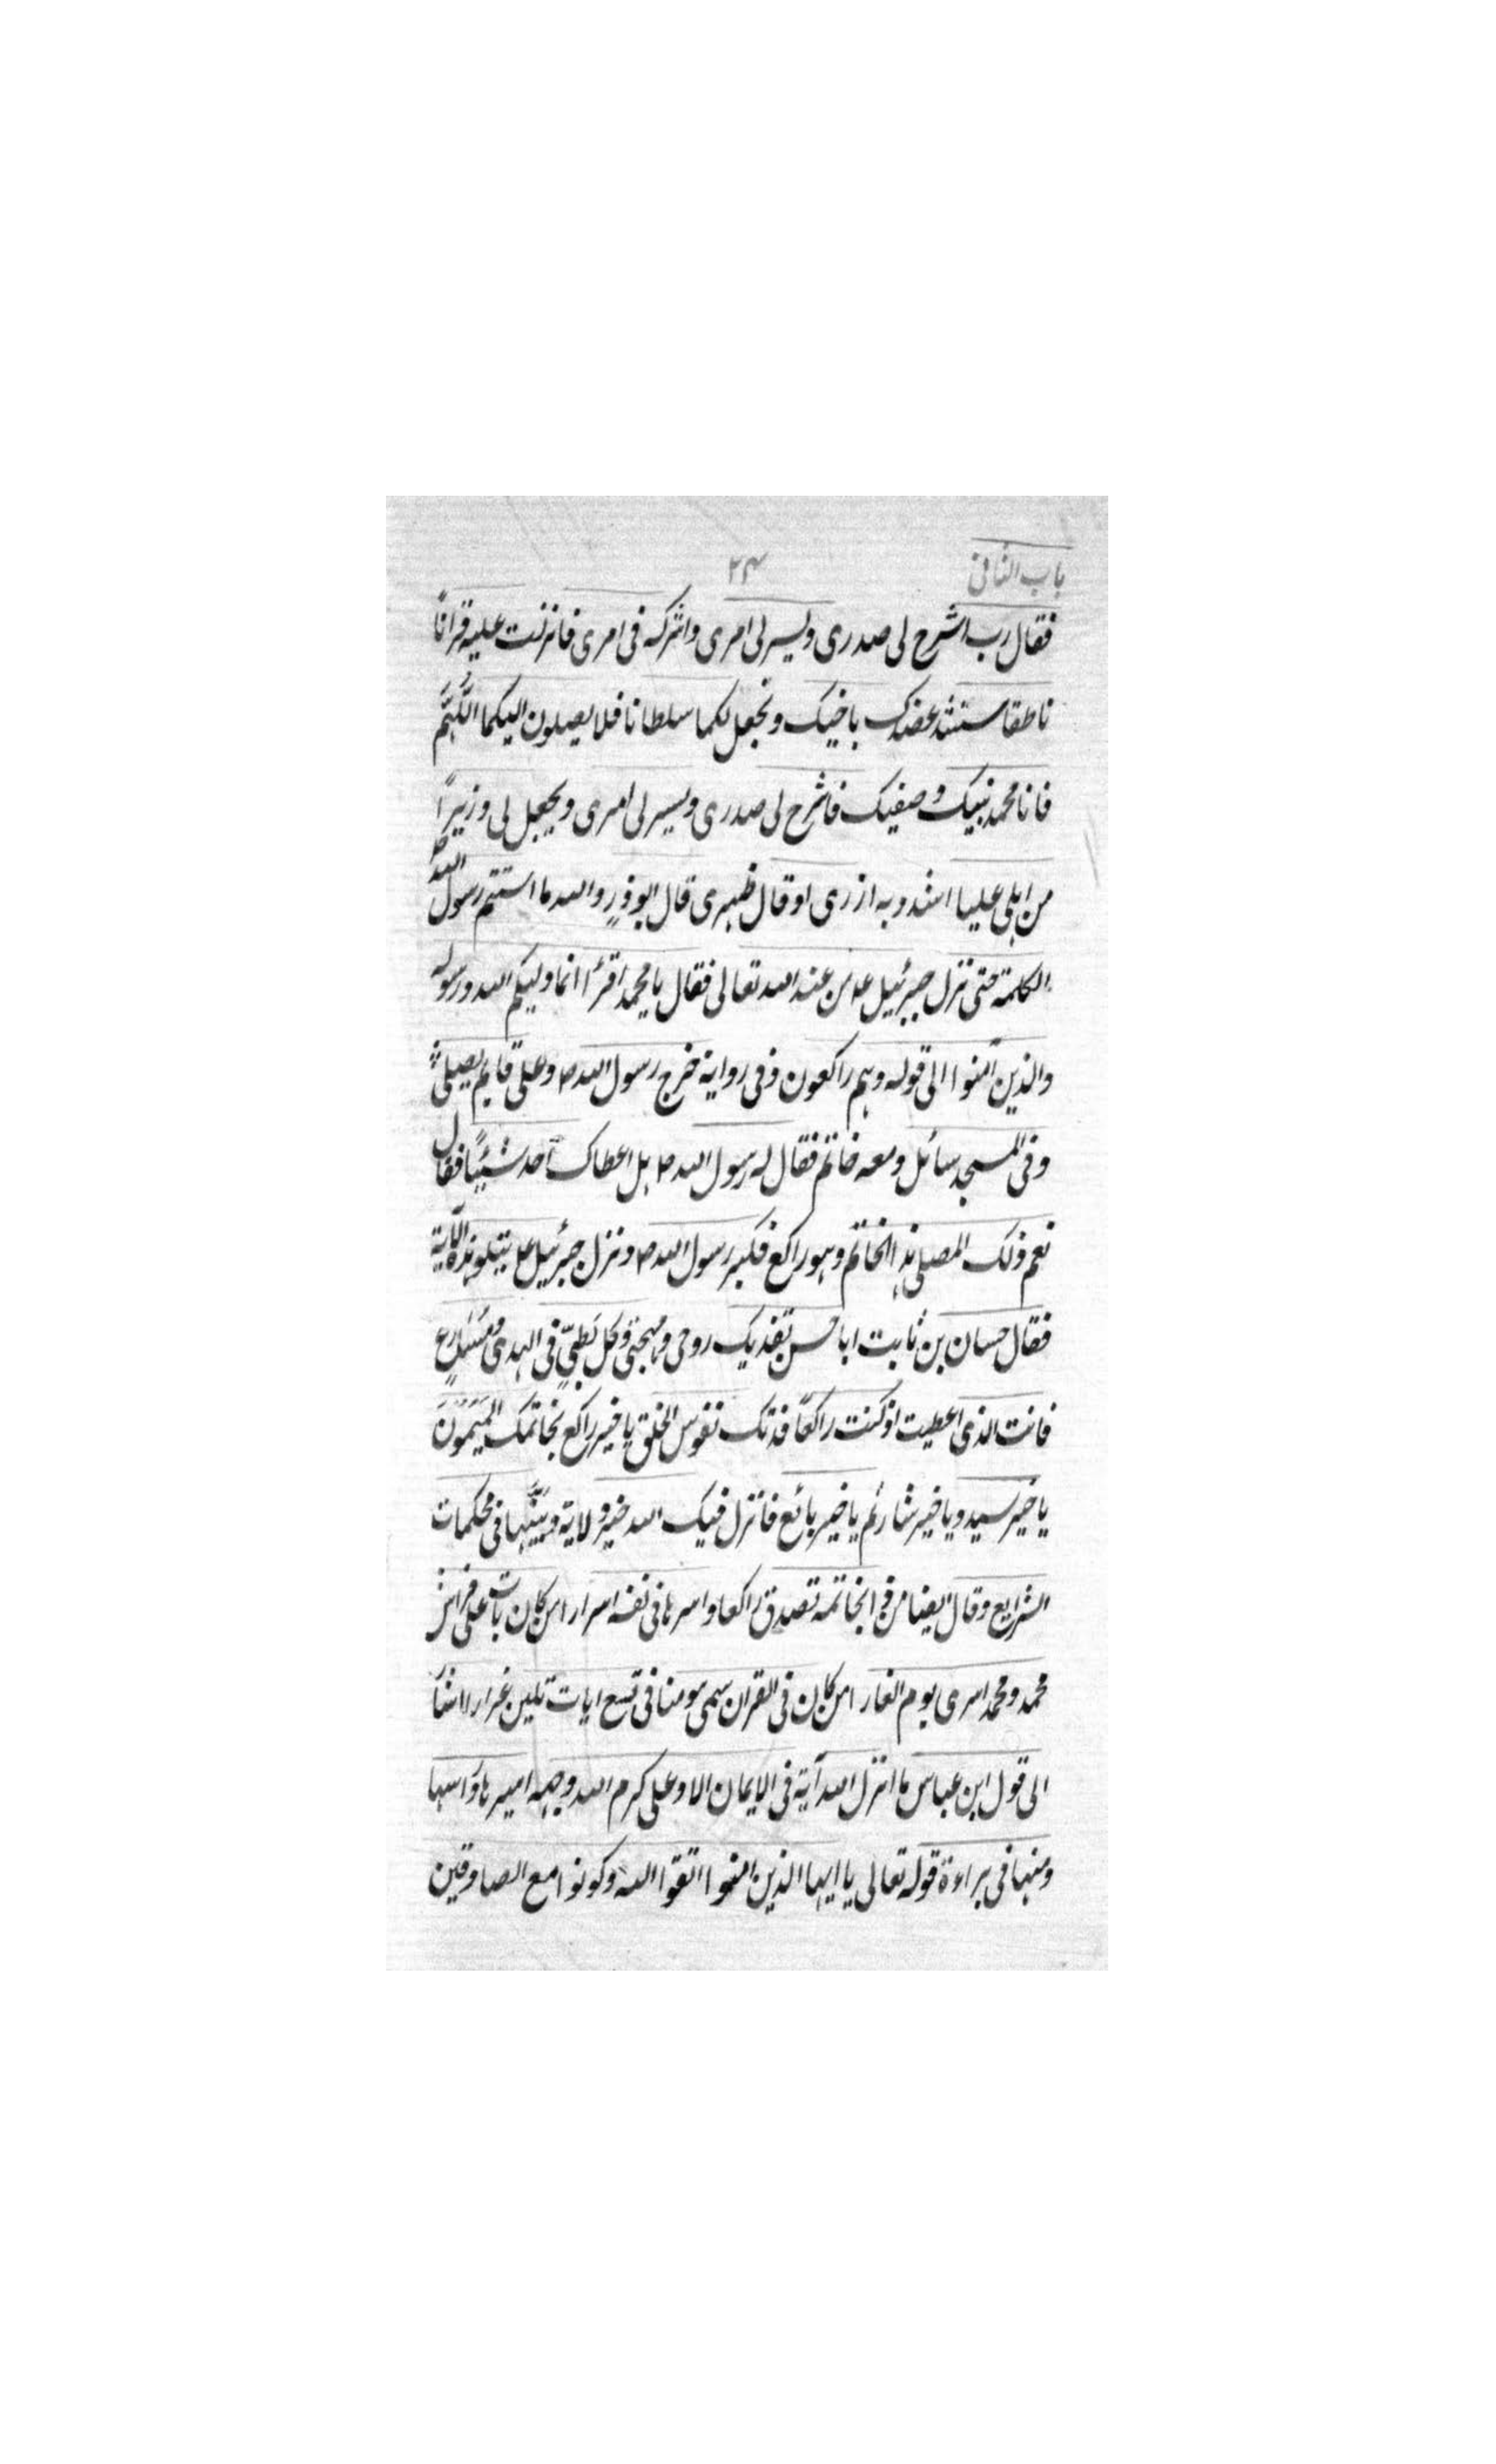 باب الثانی ٢٣
فقال رب اشرح لی صدری ویسر لی امری واشرکه فی امری فانزلت علیه قرانًا
ناطقا سنشد عضدک باخیک ونجعل لکما سلطانا فلا یصلون الیکما اللّٰهُمَّ
فانا محمد نبیک وصفیک فاشرح لی صدری ویسر لی امری ویجعل لی وزیرًا
من اهلی علیا اشدد به ازری او قال ظهری قال ابوذر والله ما استتم رسول الله ص
الکلمة حتی نزل جبرئیل ع من عند الله تعالی فقال یا محمد اقرأ انما ولیکم الله ورسوله
والذین آمنوا الی قوله وهم راکعون وفی روایة خرج رسول الله ص وعلی قایم یصلی
وفی المسجد سائل ومعه خاتم فقال له رسول الله ص هل اعطاک احد شیئًا فقال
نعم ذلک المصلی هذا الخاتم وهو راکع فکبر رسول الله ص ونزل جبرئیل ع یتلو هذه الآیة
فقال حسان بن ثابت ابا حسن تفدیک روحی ومهجتی وکل بَطِیٍّ فی الهدی ومُسَارِعٍ
فانت الذی اعطیت اذ کنت راکعًا فدتک نفوس الخلق یا خیر راکع بخاتمک المَیمُونَ
یا خیر سید ویا خیر شارٍ ثم یا خیر بائع فانزل فیک الله خیر ولایة وبَیَّنَها فی محکمات
الشرایع وقال ایضا من ذا بخاتمه تصدق راکعا واسرها فی نفسه اسرار امن کان بات علی فراش
محمد ومحمد اسری یوم الغار امن کان فی القران سمی مومنا فی تسع ایات تلین غرارا اشا
الی قول ابن عباس ما انزل الله آیة فی الایمان الا وعلی کرم الله وجهه امیرها وراسها
ومنها فی براءة قوله تعالی یا ایها الذین امنوا اتقوا الله وکونوا مع الصادقین